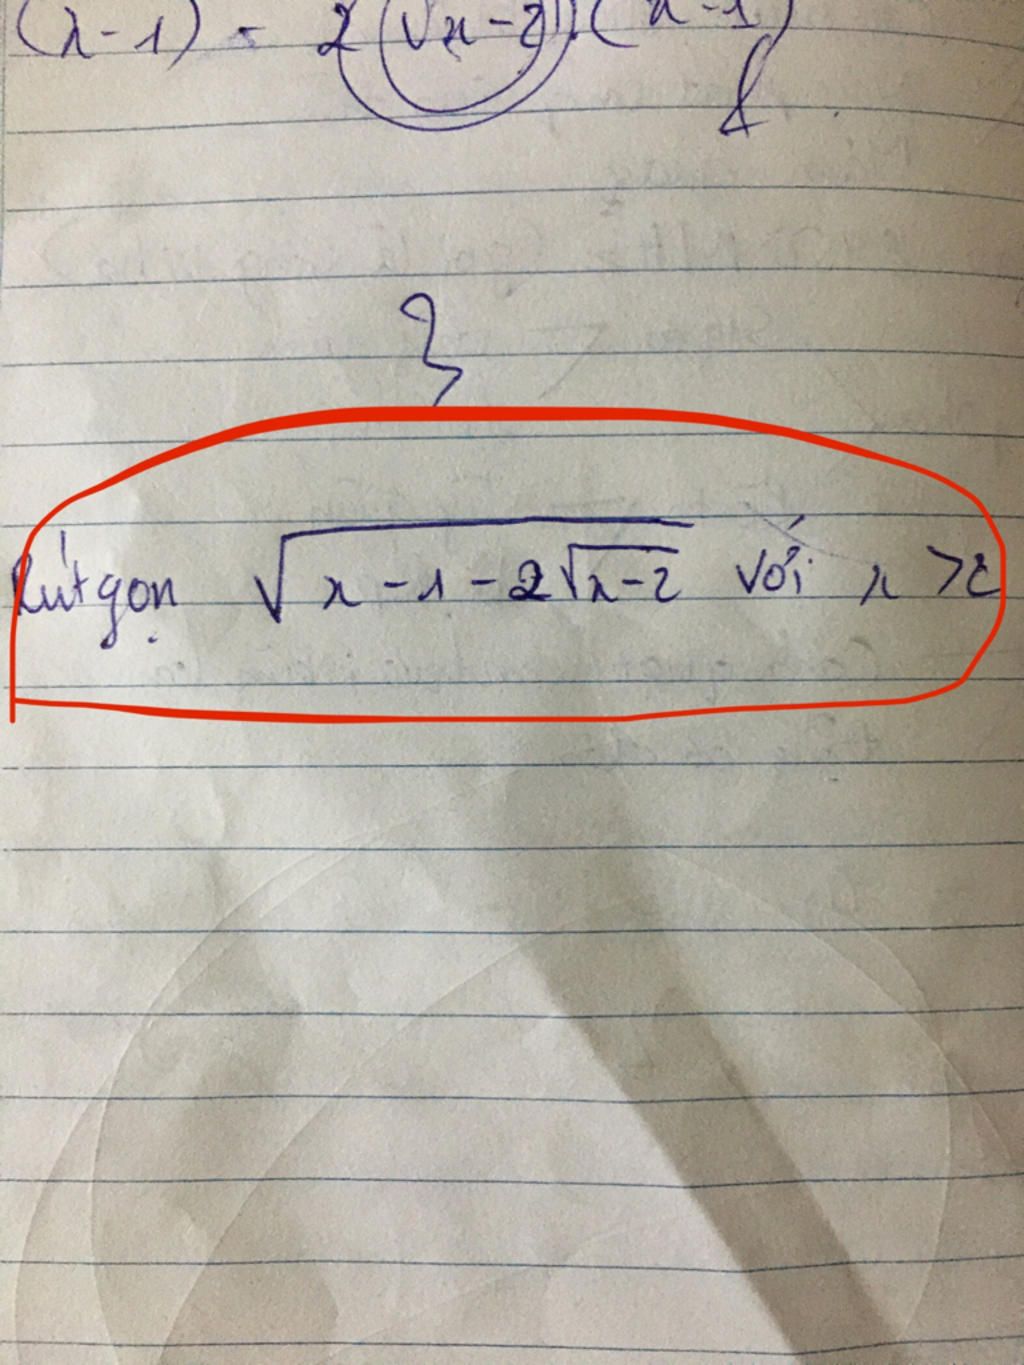 (x-1) = 2(√x-2).(x-1)
Rút gọn √x-1-2√x-2 với x >2